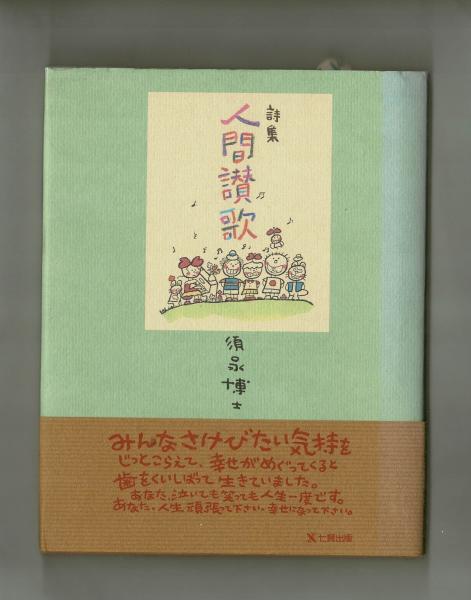 詩集
人間讃歌
須永博士
みんなさけびたい気持を
じっとこらえて、幸せがめぐってくると
歯をくいしばって生きていました。
あなた、泣いても笑っても人生一度です。
あなた、人生頑張って下さい、幸せになって下さい。
七賢出版